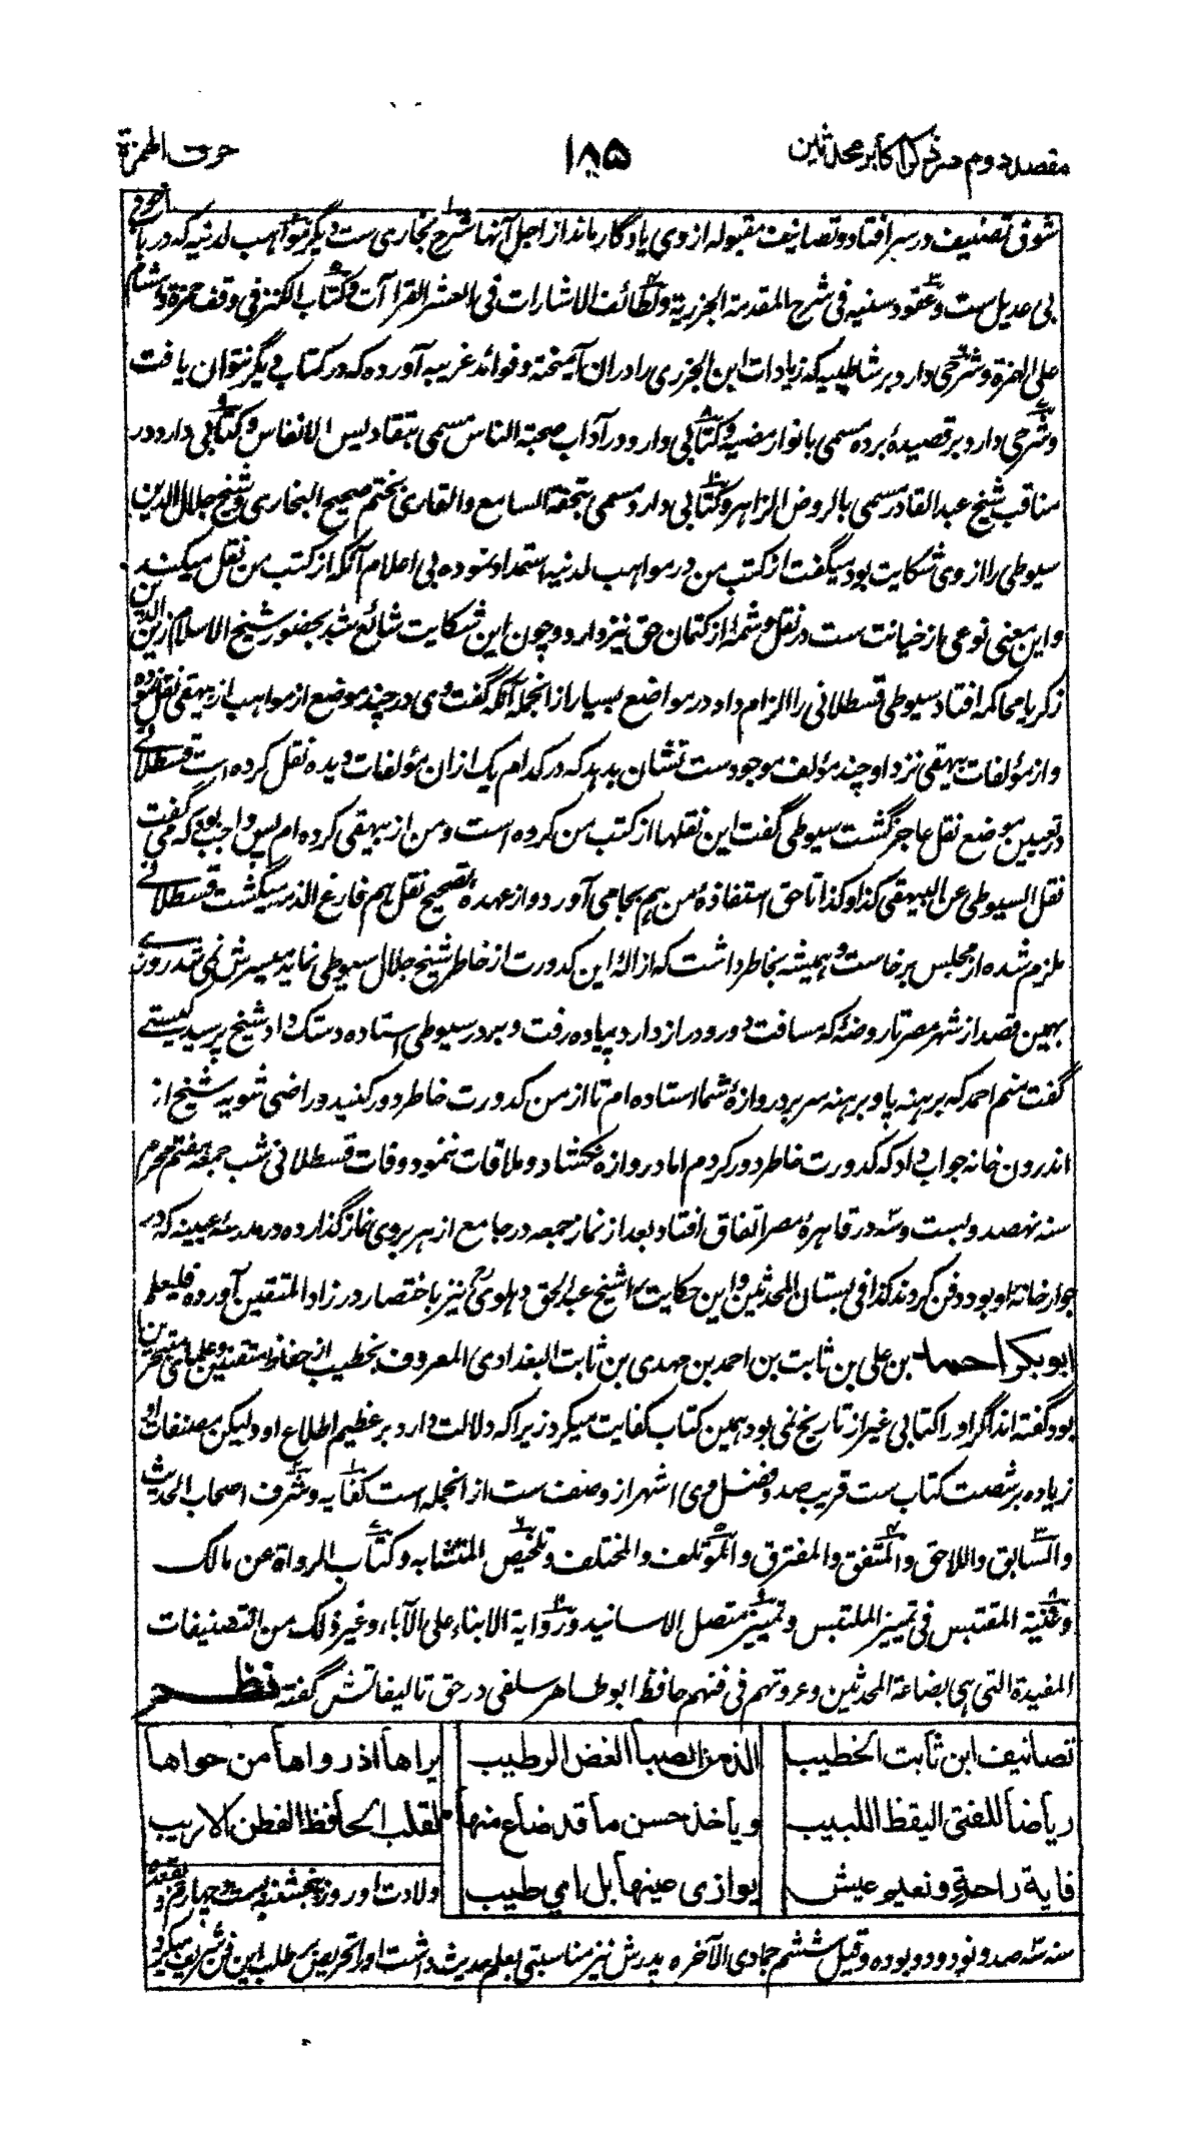 مقصد دوم در ذکر اکابر محدثین
۱۸۵
حرف الهمزة
شوق تصنیف در سر افتاد و تصانیف مقبوله از وی یادگار ماند از اجل آنها شرح بخاری ست دیگر مواهب لدنیه که در باب خود
بی عدیل ست و عقود سنیه فی شرح المقدمة الجزریة و لطائف الاشارات فی العشر القرآآت و کتاب الکنز فی وقف حمزة و هشام
علی الهمزة و شرحی دارد بر شاطبیه که زیادات ابن الجزری را دران آمیخته و فوائد غریبه آورده که در کتاب دیگر نتوان یافت
و شرحی دارد بر قصیدۀ برده مسمی بانوار مضیه و کتابی دارد در آداب صحبة الناس مسمی بنفایس الانفاس و کتابی دارد در
مناقب شیخ عبد القادر مسمی بالروض الزاهر و کتابی دارد مسمی بتحفة السامع والقاری بختم صحیح البخاری و شیخ جلال الدین
سیوطی را از وی شکایت بود میگفت از کتب من در مواهب لدنیه استمداد نموده بی اعلام آنکه از کتب من نقل میکند
و این معنی نوعی از خیانت ست در نقل و شمۀ از کتمان حق نیز دارد و چون این شکایت شائع شد بحضور شیخ الاسلام زین الدین
زکریا محاکمه افتاد سیوطی قسطلانی را الزام داد در مواضع بسیار از انجمله آنکه گفت وی در چند موضع از مواهب از بیهقی نقل نموده
و از مؤلفات بیهقی نزد او چند مؤلف موجود ست نشان بدهد که در کدام یک ازان مؤلفات دیده نقل کرده است قسطلانی
در تعیین موضع نقل عاجز گشت سیوطی گفت این نقلها از کتب من کرده است و من از بیهقی کرده ام پس واجب بود که می گفت
نقل السیوطی عن البیهقی کذا و کذا تا حق استفادۀ من هم بجا می آورد و از عهده تصحیح نقل هم فارغ الذمه میگشت قسطلانی
ملزم شده از مجلس برخاست و همیشه بخاطر داشت که ازالۀ این کدورت از خاطر شیخ جلال سیوطی نماید میسرش نمی شد روزی
بهمین قصد از شهر مصر تا روضه که مسافت دور و دراز دارد پیاده رفت و بر در سیوطی استاده دستک داد شیخ پرسید کیستی
گفت منم احمد که برهنه پا و برهنه سر بر دروازۀ شما استاده ام تا از من کدورت خاطر دور کنید و راضی شوید شیخ از
اندرون خانه جواب داد که کدورت خاطر دور کردم اما دروازه نکشاد و ملاقات ننمود وفات قسطلانی شب جمعه هفتم محرم
سنه نهصد و بست و سه در قاهرۀ مصر اتفاق افتاد بعد از نماز جمعه در جامع ازهر بروی نماز گذارده در مدرسۀ عینیه که در
جوار خانۀ او بود دفن کردند کذا فی بستان المحدثین و این حکایت را شیخ عبد الحق دهلوی نیز باختصار در زاد المتقین آورده فلیعلم
ابو بکر احمد بن علی بن ثابت بن احمد بن مهدی بن ثابت البغدادی المعروف بخطیب از حفاظ متقنین و علمای متبحرین
بود گفته اند اگر او را کتابی غیر از تاریخ نمی بود همین کتاب کفایت میکرد زیرا که دلالت دارد بر عظیم اطلاع او و لیکن مصنفات او
زیاده بر شصت کتاب ست قریب صد و فضل وی اشهر از وصف ست از انجمله است کفایه و شرف اصحاب الحدیث
والسابق واللاحق والمتفق والمفترق والمؤتلف والمختلف وتلخیص المتشابه وکتاب الرواة عن مالک
وغنیة المقتبس فی تمییز الملتبس وتمییز متصل الاسانید وروایة الابناء علی الآباء وغیر ذلک من التصنیفات
المفیدة التی هی بضاعة المحدثین وعروتهم فی فنهم حافظ ابو طاهر سلفی در حق تالیفاتش گفته نظم
تصانیف ابن ثابت الخطیب الذ من الصبا الغض الرطیب یراها اذ رواها من حواها
ریاضا للفتی الیقظ اللبیب ویاخذ حسن ما قد ضاع منها لقلب الحافظ الفطن الاریب
فایة راحة ونعیم عیش یوازی عینها بل ای طیب ولادت او روز پنجشنبه بست و چهارم ذیقعده
سنه سه صد و نود و دو بوده و قیل ششم جمادی الآخره پدرش نیز مناسبتی بعلم حدیث داشت او را تحریص بر طلب این فن شریف میکرد و